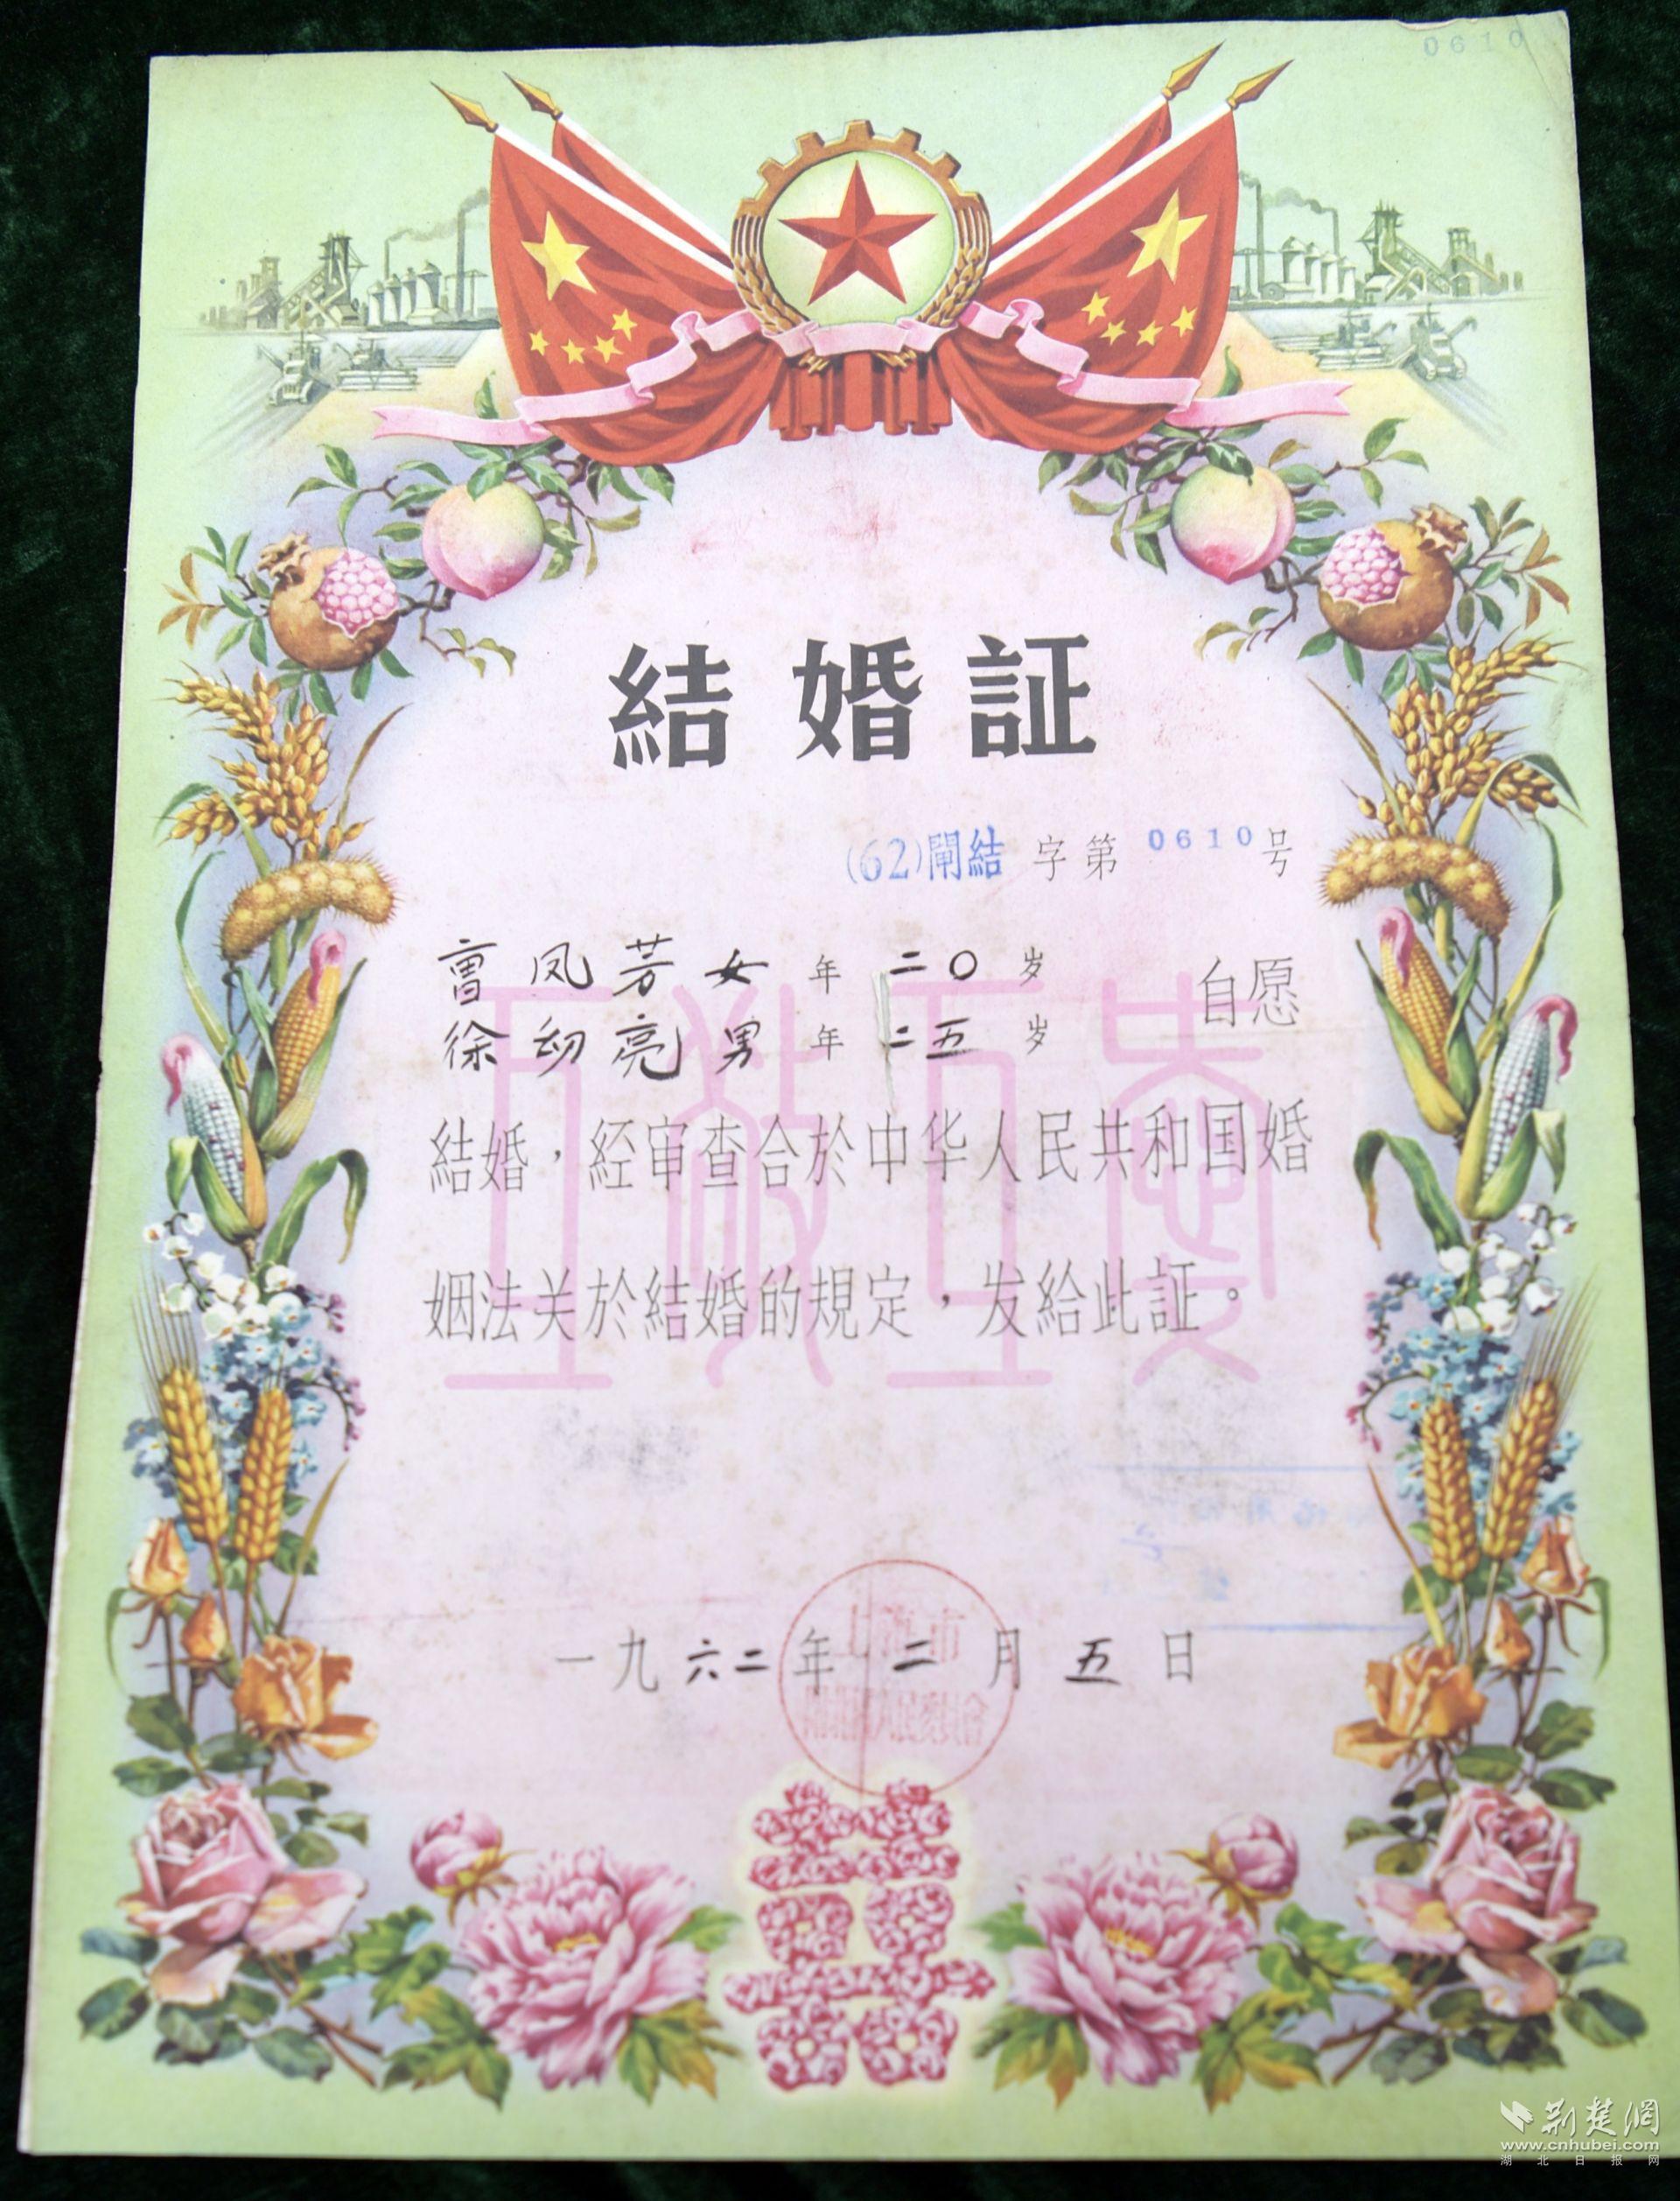 0610
結婚証
(62)閘結 字第 0610 号
曹凤芳 女 年 二〇 岁
徐幼亮 男 年 二五 岁
自愿
結婚，経审查合於中华人民共和国婚
姻法关於結婚的規定，发給此証。
互敬互爱
一九六二年 二 月 五 日
上海市
闸北区人民委員会
囍
荆楚網
www.cnhubei.com
湖北日报网